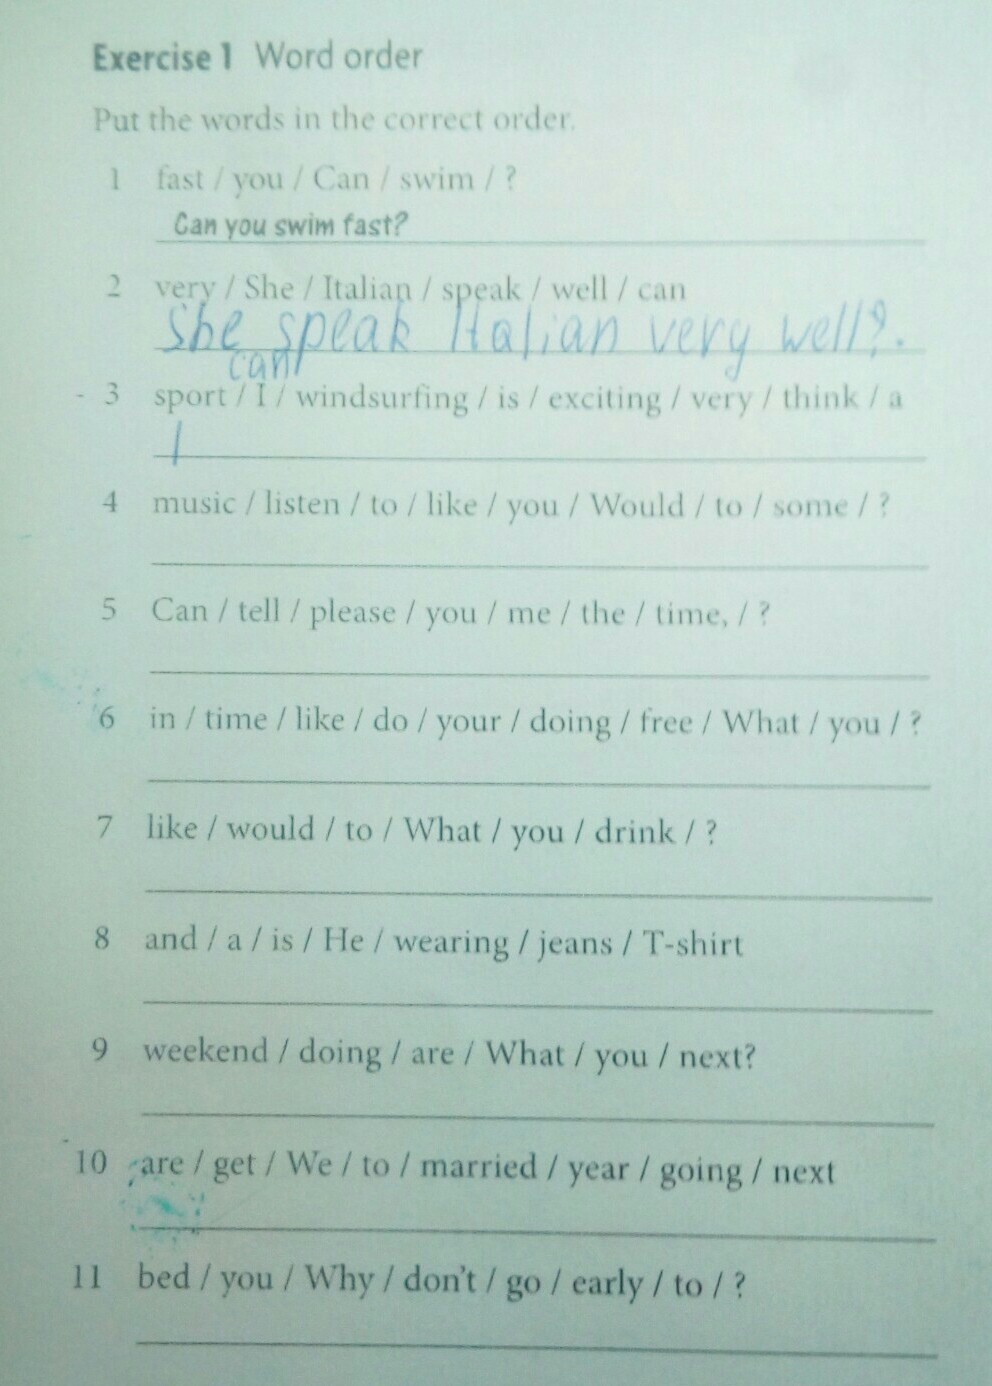 Exercise 1 Word order
Put the words in the correct order.
1 fast / you / Can / swim / ?
Can you swim fast?
2 very / She / Italian / speak / well / can
She speak Italian very well?.
can
3 sport / I / windsurfing / is / exciting / very / think / a
I
4 music / listen / to / like / you / Would / to / some / ?
5 Can / tell / please / you / me / the / time, / ?
6 in / time / like / do / your / doing / free / What / you / ?
7 like / would / to / What / you / drink / ?
8 and / a / is / He / wearing / jeans / T-shirt
9 weekend / doing / are / What / you / next?
10 are / get / We / to / married / year / going / next
11 bed / you / Why / don't / go / early / to / ?